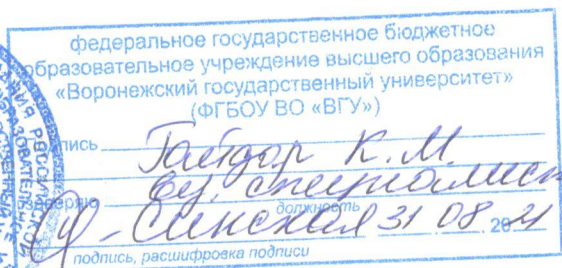 федеральное государственное бюджетное
образовательное учреждение высшего образования
«Воронежский государственный университет»
(ФГБОУ ВО «ВГУ»)
Гайдар К.М.
вед. специалист
должность
31 08 2021
подпись, расшифровка подписи